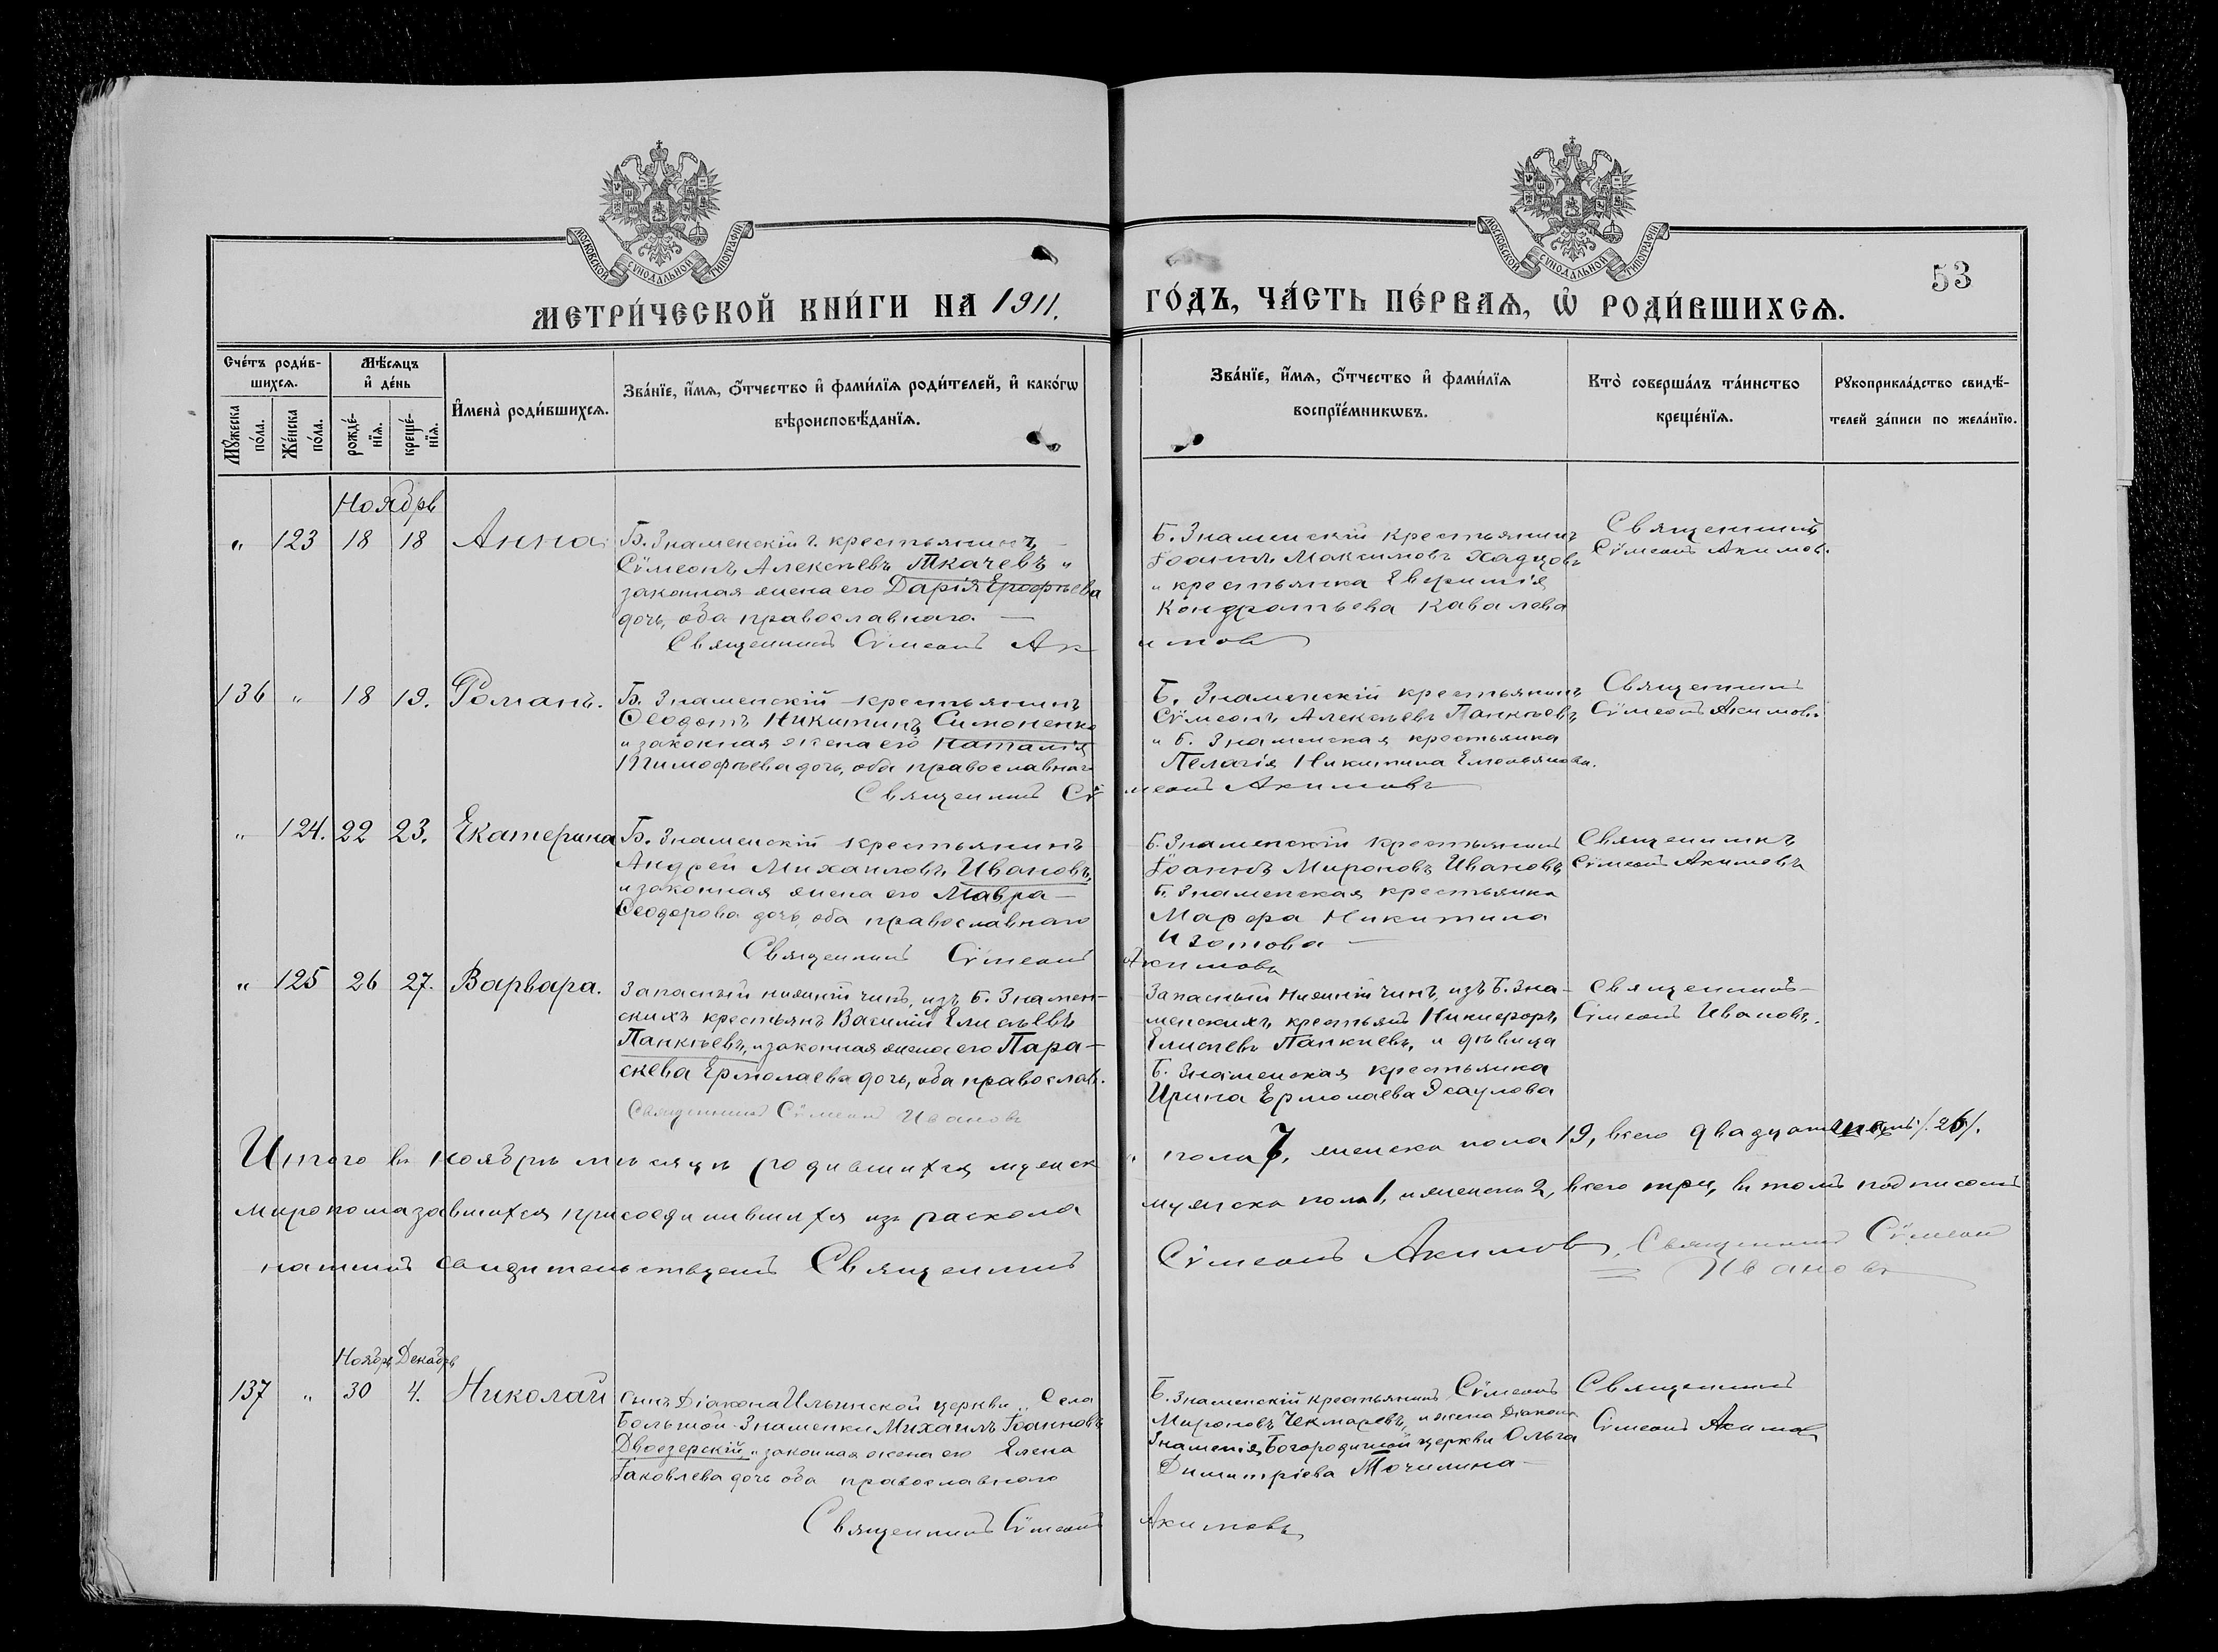 МОСКОВСКОЙ СѴНОДАЛЬНОЙ ТИПОГРАФІИ
МОСКОВСКОЙ СѴНОДАЛЬНОЙ ТИПОГРАФІИ
53
МЕТРИ́ЧЕСКОЙ КНИ́ГИ НА 1911. ГО́ДЪ, ЧА́СТЬ ПЕ́РВАѦ, Ѡ҆ РОДИ́ВШИХСѦ.
Сче́тъ роди́в-
шихсѧ.
Мꙋ́жеска по́ла.
Же́нска по́ла.
Мѣ́сѧцъ
и҆ де́нь
рожде́-
нїѧ.
креще́-
нїѧ.
И҆мена̀ роди́вшихсѧ.
Зва́нїе, и҆́мѧ, ѻ҆́тчество и҆ фами́лїѧ роди́телей, и҆ како́гѡ
вѣроисповѣ́данїѧ.
Зва́нїе, и҆́мѧ, ѻ҆́тчество и҆ фами́лїѧ
воспрїе́мникѡвъ.
Кто̀ соверша́лъ та́инство
креще́нїѧ.
Рꙋкоприкла́дство свидѣ́-
телей за́писи по жела́нїю.
Ноябрь
" 123 18 18 Анна
Б. Знаменскій г. крестьянинъ
Сѵмеонъ Алексѣевъ Ткачевъ и
законная жена его Дарія Ерофѣева
дочь, оба православнаго
Б. Знаменскій крестьянинъ
Іоаннъ Максимовъ Хадцовъ
и крестьянка Евфимія
Кондратьева Кавалева
Священникъ
Сѵмеонъ Акимовъ.
Священникъ Сѵмеонъ Акимовъ
136 " 18 19. Романъ.
Б. Знаменскій крестьянинъ
Ѳеодотъ Никитинъ Симоненко
и законная жена его Наталія
Тимофѣева дочь, оба православнаго
Б. Знаменскій крестьянинъ
Сѵмеонъ Алексѣевъ Панкѣевъ
и Б. Знаменская крестьянка
Пелагія Никитина Емельянова.
Священникъ
Сѵмеонъ Акимовъ.
Священникъ Сѵмеонъ Акимовъ
" 124. 22 23. Екатерина
Б. Знаменскій крестьянинъ
Андрей Михаиловъ Ивановъ,
и законная жена его Мавра
Ѳеодорова дочь, оба православнаго
Б. Знаменскій крестьянинъ
Іоаннъ Мироновъ Ивановъ
Б. Знаменская крестьянка
Марфа Никитина
Изотова
Священникъ
Сѵмеонъ Акимовъ
Священникъ Сѵмеонъ Акимовъ
" 125 26 27. Варвара.
Запасный нижній чинъ, изъ Б. Знамен-
скихъ крестьянъ Василій Елисѣевъ
Панкѣевъ, и законная жена его Пара-
скева Ермолаева дочь, оба православ.
Запасный нижній чинъ, изъ Б. Зна-
менскихъ крестьянъ Никифоръ
Елисѣевъ Панкѣевъ, и дѣвица
Б. Знаменская крестьянка
Ирина Ермолаева Эсаулова
Священникъ
Сѵмеонъ Ивановъ.
Священникъ Сѵмеонъ Ивановъ
Итого въ ноябрѣ мѣсяцѣ родившихся мужеска пола 7, женска пола 19, всего двадцать шесть /. 26/.
Миропомазавшихся присоединившихся изъ раскола мужска пола 1, и женска 2, всего три, въ томъ подписомъ
нашимъ свидѣтельствуемъ Священникъ Сѵмеонъ Акимовъ, Священникъ Сѵмеонъ
Ивановъ
Ноябрь Декабрь
137 " 30 4. Николай
Сынъ Діакона Ильинской церкви Села
Большой-Знаменки Михаилъ Іоанновъ
Двоезерскій, и законная жена его Елена
Іаковлева дочь оба православнаго
Б. Знаменскій крестьянинъ Сѵмеонъ
Мироновъ Чекмаревъ, и жена Діакона
Знаменія Богородичной церкви Ольга
Димитріева Точилина
Священникъ
Сѵмеонъ Акимовъ
Священникъ Сѵмеонъ Акимовъ